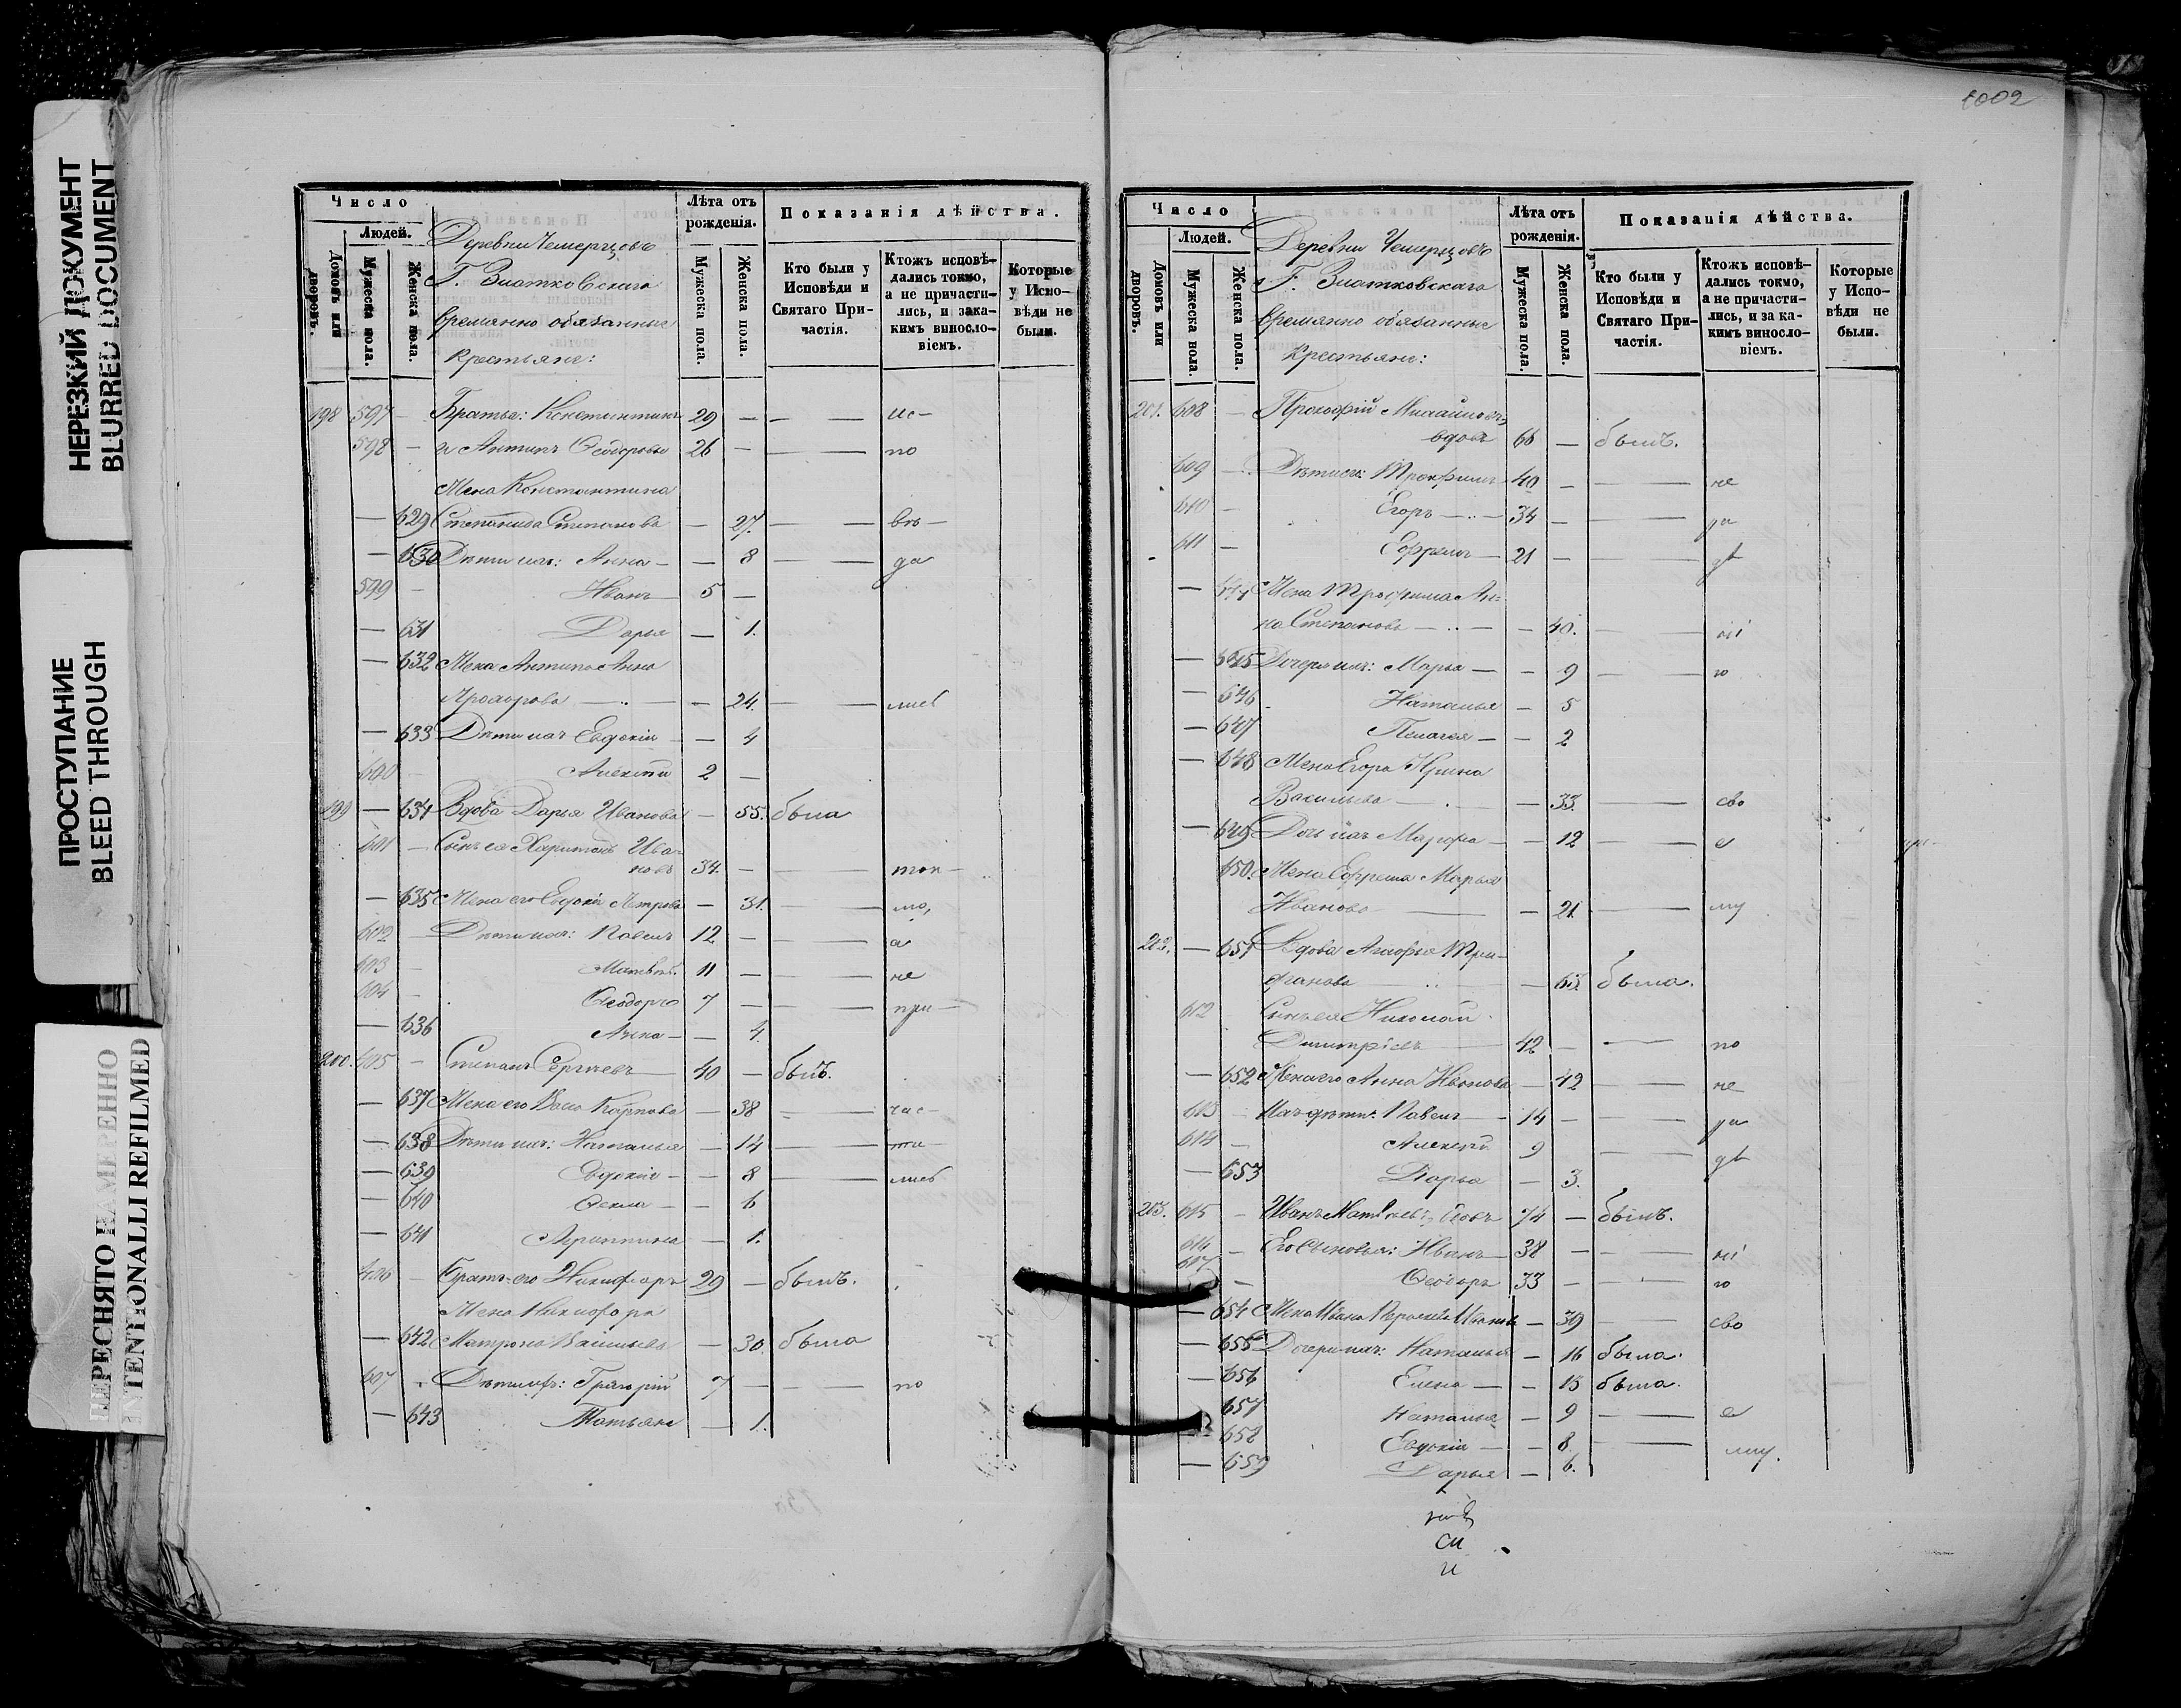 НЕРЕЗКИЙ ДОКУМЕНТ
BLURRED DOCUMENT
ПРОСТУПАНИЕ
BLEED THROUGH
ПЕРЕСНЯТО НАМЕРЕННО
INTENTIONALLI REFILMED
Число
Людей.
Домовъ или дворовъ.
Мужеска пола.
Женска пола.
Деревни Чемерцовъ
Г. Златковскаго
временно обязанные
крестьяне:
Лѣта отъ рожденія.
Мужеска пола.
Женска пола.
Показанія дѣйства.
Кто были у Исповѣди и Святаго Причастія.
Ктожъ исповѣ-
дались токмо,
а не причасти-
лись, и зака-
кимъ виносло-
віемъ.
Которые
у Испо-
вѣди не
были.
198 597 — Братья: Константинъ 29 — — — ис-
598 — и Антипъ Ѳедоровы 26 — — по
Жена Константина
— 629 Степанида Степанова — 27. — — вѣ-
— 630 Дѣти ихъ: Анна — — 8 — — да
599 — Иванъ 5 —
— 631 Дарья — 1.
— 632 Жена Антипа Анна
Прохорова — — 24. — — лисѣ
— 633 Дѣти ихъ Евдокія — — 4
600 — Алексѣй 2 —
199 — 634 Вдова Дарья Иванова — 55. была
601 — Сынъ ея Харитонъ Ива-
новъ 34. — — — ток-
— 635 Жена его Евдокія Петрова — 31. — — мо,
602 — Дѣти ихъ: Павелъ 12 — — — а
603 — Матвѣй 11 — — — не
604 — Ѳеодоръ 7 — — — при-
— 636 Анна — — 4.
200. 605 — Степанъ Сергѣевъ 40 — былъ.
— 637 Жена его Васса Карпова — 38 — — час-
— 638 Дѣти ихъ: Наталья — 14 — — ти-
— 639 Евдокія — — 8 — — лисѣ
— 640 Ѳекла — — 6
— 641 Агриппина — 1.
606 — Братъ его Никифоръ 29 — былъ.
Жена Никифора
— 642 Матрона Васильева — 30. была
607 — Дѣти ихъ: Григорій 7 — — — по
— 643 Татьяна — 1.
1002
Число
Людей.
Домовъ или дворовъ.
Мужеска пола.
Женска пола.
Деревни Чемерцовъ
Г. Златковскаго
временно обязанные
крестьяне:
Лѣта отъ рожденія.
Мужеска пола.
Женска пола.
Показанія дѣйства.
Кто были у
Исповѣди и
Святаго При-
частія.
Ктожъ исповѣ-
дались токмо,
а не причасти-
лись, и за ка-
кимъ винослo-
віемъ.
Которые
у Испо-
вѣди не
были.
201. 608 — Прокофій Михайловъ,
вдовъ 66 — былъ.
609 — Дѣти его: Трофимъ 40 — — не
610 — Егоръ — 34 — — ра
611 — Ефремъ — 21 — — дѣ
— 644 Жена Трофима Ан-
на Степанова — — 40. — ні
— 645 Дочери ихъ: Марья — — 9 — — ю
— 646 Наталья — 5
— 647 Пелагея — — 2
— 648 Жена Егора Ирина
Васильева — — 33. — сво
— 649 Дочь ихъ Марфа — — 12 — е
650. Жена Ефрема Марья
Иванова — — 21. — му
202. — 651 Вдова Агафья Три-
фанова — — 65 была.
612 Сынъ ея Николай
Димитріевъ 42 — — по
— 652 Жена его Анна Иванова — 42 — — не
613 — Ихъ дѣти: Павелъ — 14 — — ра
614 — Алексѣй 9 — дѣ
— 653 Дарья — 3.
203. 615 — Иванъ Матвѣевъ, вдовъ 74 — былъ.
616 — Его сыновья: Иванъ — 38 — — ні
617 — Ѳеодоръ 33 — — ю
— 654 Жена Ивана Парасковья Иванова — 39 — — сво
— 655 Дочери ихъ: Наталья — 16 была.
— 656 Елена — — 13 была.
657 Наталья — 9 — — е
— 658 Евдокія — — 8. — му.
— 659 Дарья — 6.
си
и